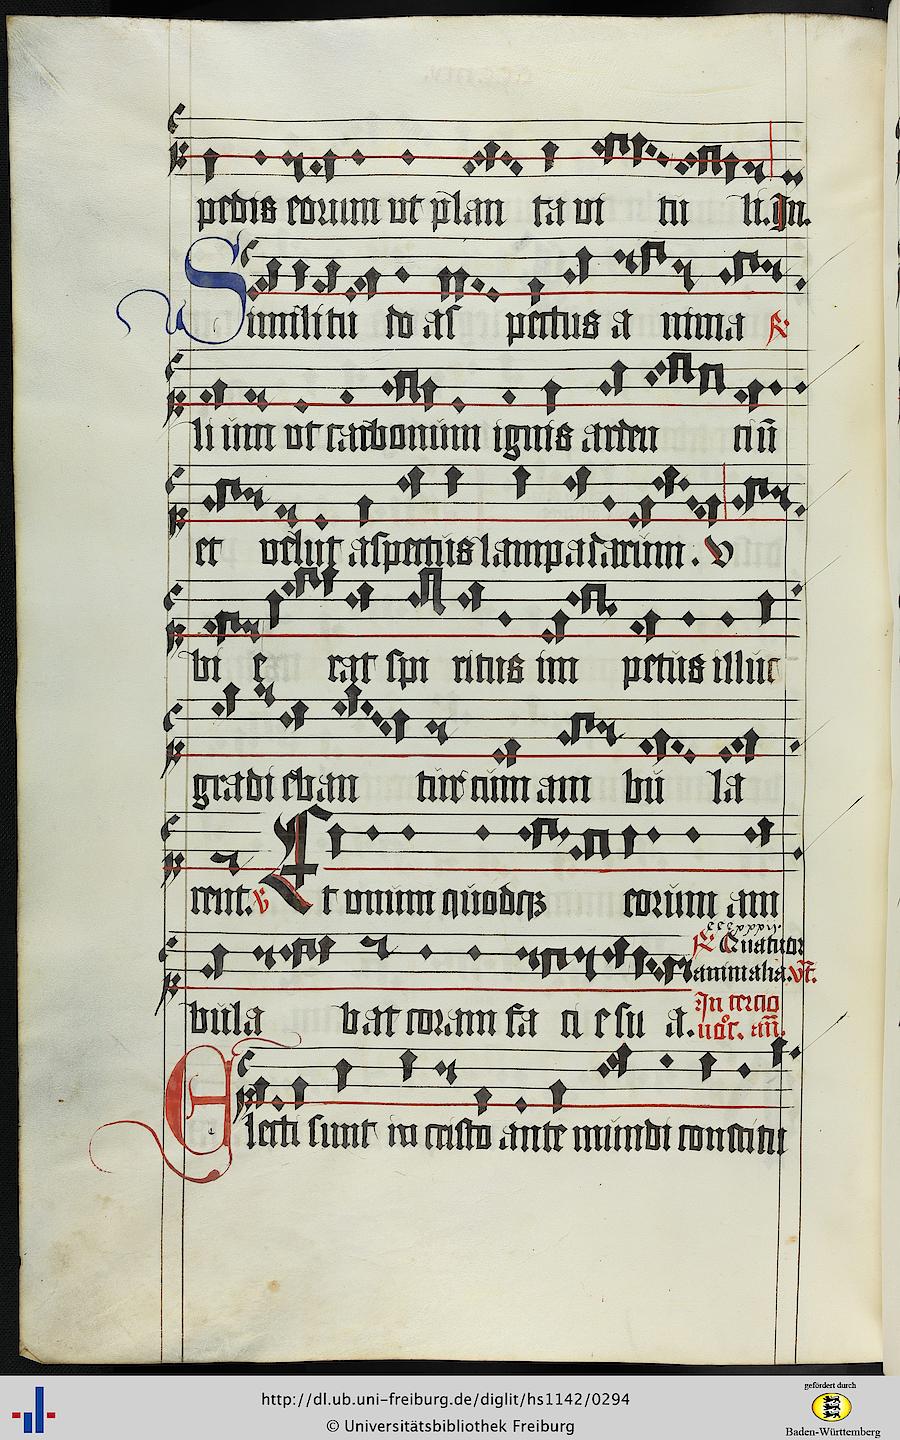 pedis eorum ut plan ta vi tu li. In.
Similitu do as pectus a nima R
li um ut carbonum ignis arden tiū
et velut aspectus lampadarum. V
bi e rat spi ritus im petus illuc
gradi eban tur cum am bu la
rent. V Et unum quodqꝫ eorum am
bula bat coram fa ci e su a.
R Quatuor
animalia. Vt.
In tercio
noct. an.
Electi sunt in cristo ante mundi constitu
http://dl.ub.uni-freiburg.de/diglit/hs1142/0294
© Universitätsbibliothek Freiburg
gefördert durch
Baden-Württemberg